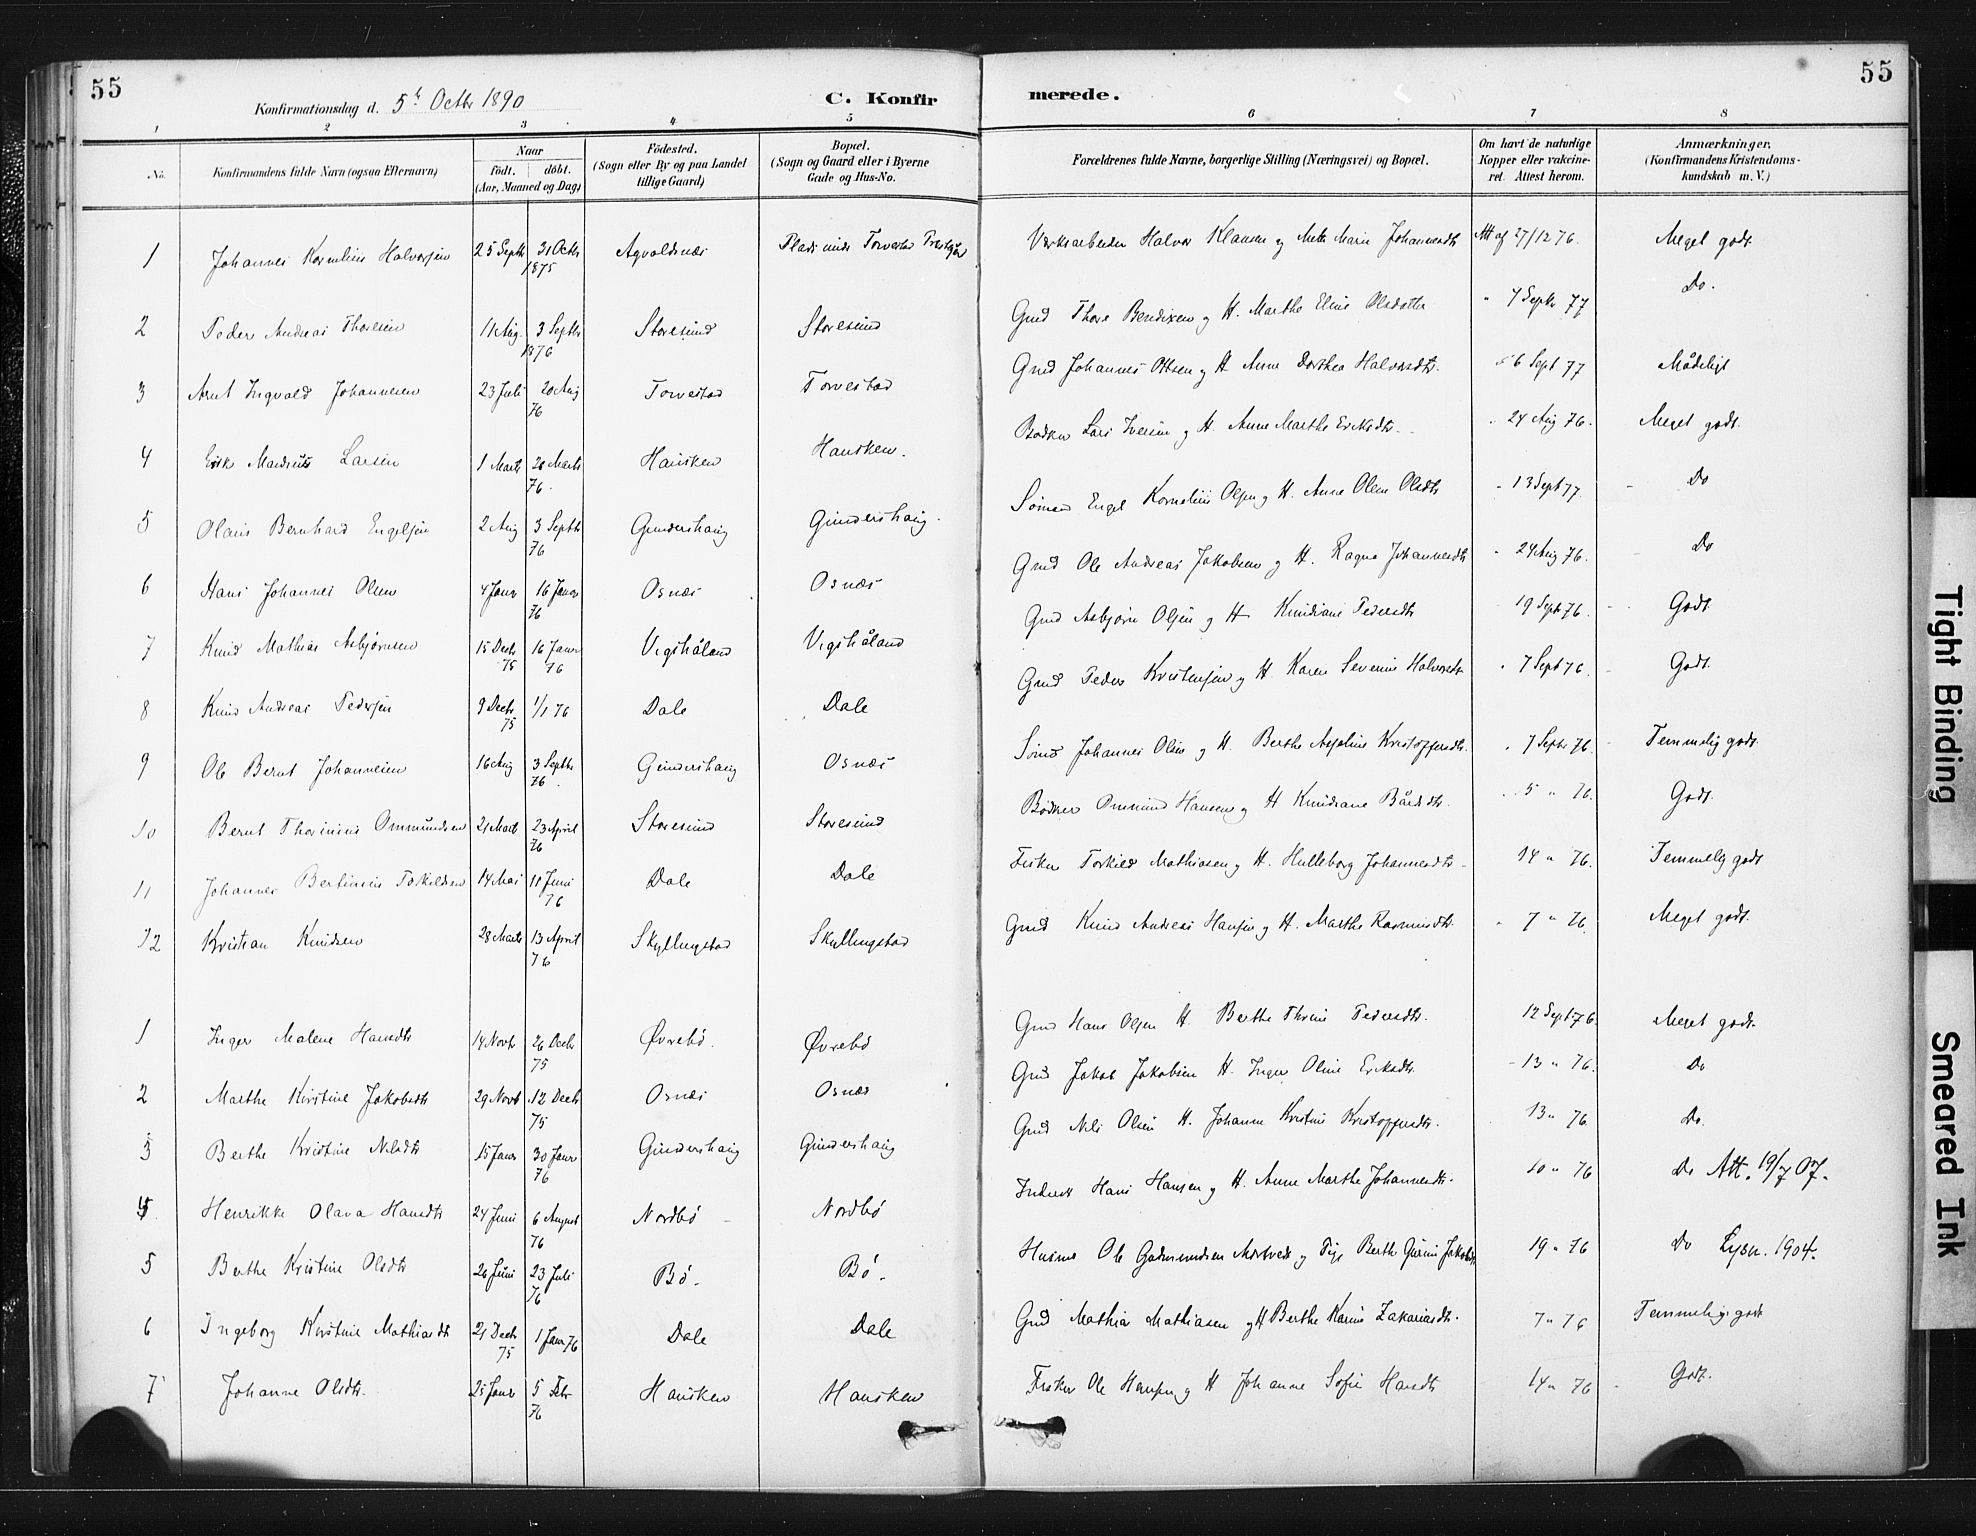 55 55
Konfirmationsdag d. 5t Octbr 1890 C. Konfirmerede.
1 2 3 4 5 6 7 8
No. Konfirmandens fulde Navn (ogsaa Efternavn) Naar födt. döbt. (Aar, Maaned og Dag) Födested. (Sogn eller By og paa Landet tillige Gaard) Bopæl. (Sogn og Gaard eller i Byerne Gade og Hus-No. Forældrenes fulde Navne, borgerlige Stilling (Næringsvei) og Bopæl. Om havt de naturlige Kopper eller vakcineret. Attest herom. Anmærkninger. (Konfirmandens Kristendomskundskab m. V.)
1 Johannes Kornelius Halvorsen 25 Septbr 31 Octbr 1875 Agvaldsnæs Plads under Torvestad Halvor Klausen og Mette Marie Johannesdtr Att af 27/12 76. Meget godt.
2 Peder Andreas Thoresen 11 Aug. 3 Septbr 1876 Storesund Storesund Gmd Thore Bendixen og H. Marthe Eline Olsdatter " 7 Septbr 77 Do.
3 Arnt Ingvald Johannesen 23 Juli 20 Aug 76 Torvestad Torvestad Gmd Johannes Ottsen og H Anne Dorthea Halvorsdtr. 6 Sept 77 Mådeligt
4 Erik Mardsius Larsen 1 Marts 26 Marts 76. Hausken Hausken. Bødker Lars Iversen og H. Anne Marthe Eriksdtr. " 24 Aug 76. Meget godt.
5 Olaus Bernhard Engelsen 2 Aug 3 Septbr 76 Gundershaug Gundershaug. Sømand Engel Kornelius Olsen og H. Anne Olene Olsdtr " 13 Sept 77. Do
6 Hans Johannes Olsen 4 Januar 16 Januar 76 Osnæs Osnæs Gmd Ole Andreas Jakobsen og H. Ragna Johannesdtr " 24 Aug 76. Do
7 Knud Mathias Asbjørnsen 15 Decbr 75 16 Januar 76 Vigshåland Vigshåland Gmd Asbjørn Olsen og H Knudiane Pedersdtr 19 Sept 76. Godt.
8 Knud Andreas Pedersen 9 Decbr 75 1/1 76 Dale Dale Gmd Peder Kristensen og H. Karen Severine Halvorsdtr " 7 Sept 76. Godt.
9 Ole Bernt Johannesen 16 Aug 3 Septbr 76. Gundershaug Osnæs Sømd Johannes Olsen og H. Berthe Kristoffersdtr. " 7 Septbr 76. Temmelig godt.
10 Bernt Thorinius Ommundsen 21 Marts 23 April 76 Storesund Storesund Bødker Ommund Hansen og H Knudiane Bårdsdtr. 5 " 76. Godt.
11 Johannes Bertinius Torkildsen 14 Mai 11 Juni 76 Dale Dale Fisker Torkild Mathiasen og H. Hulleborg Johannesdtr 14 " 76. Temmelig godt
12 Kristian Knudsen 28 Marts 13 April 76 Skyllingstad Skyllingstad Gmd Knud Andreas Hansen og H. Marthe Rasmusdtr. " 7 " 76. Meget godt.
1 Inger Malene Hansdtr 14 Novbr 26 Decbr 75 Øvrebø. Øvrebø Gmd Hans Olsen H. Berthe Thrine Pedersdtr. 12 Sept 76. Meget godt.
2 Marthe Kirstine Jakobsdtr 29 Novb 12 Decbr 75 Osnæs Osnæs Gmd Jakob Jakobsen H. Inger Oline Eriksdtr. 13 " 76. Do
3 Berthe Kristine Nilsdtr 15 Januar 30 Januar 76 Gundershaug Gundershaug Gmd Nils Olsen H. Johanne Kristine Kristoffersdtr. 13 " 76 Do.
4 Henrikke Olava Hansdtr 24 Juni 6 August 76 Nordbø Nordbø Inderst Hans Hansen og H. Anne Marthe Johannesdtr. 10 " 76 Do Att. 19/7 07.
5 Berthe Kristine Olsdtr 26 Juni 23 Juli 76 Bø. Bø. Husmd Ole Gudmundsen og Pige Berthe Gurine 19 " 76 Do Lysn. 1904.
6 Ingeborg Kirstine Mathiasdtr 21 Decbr 75 1 Januar 76 Dale Dale Gmd Mathias Mathiasen og H Berthe Karine Zakariasdtr. 7 " 76 Temmelig godt
7 Johanne Olsdtr. 25 Januar 5 Febr 76 Hausken Hausken Fisker Ole Hansen og H Johanne Sofie Hansdtr 14 " 76 Godt.
Tight Binding
Smeared Ink